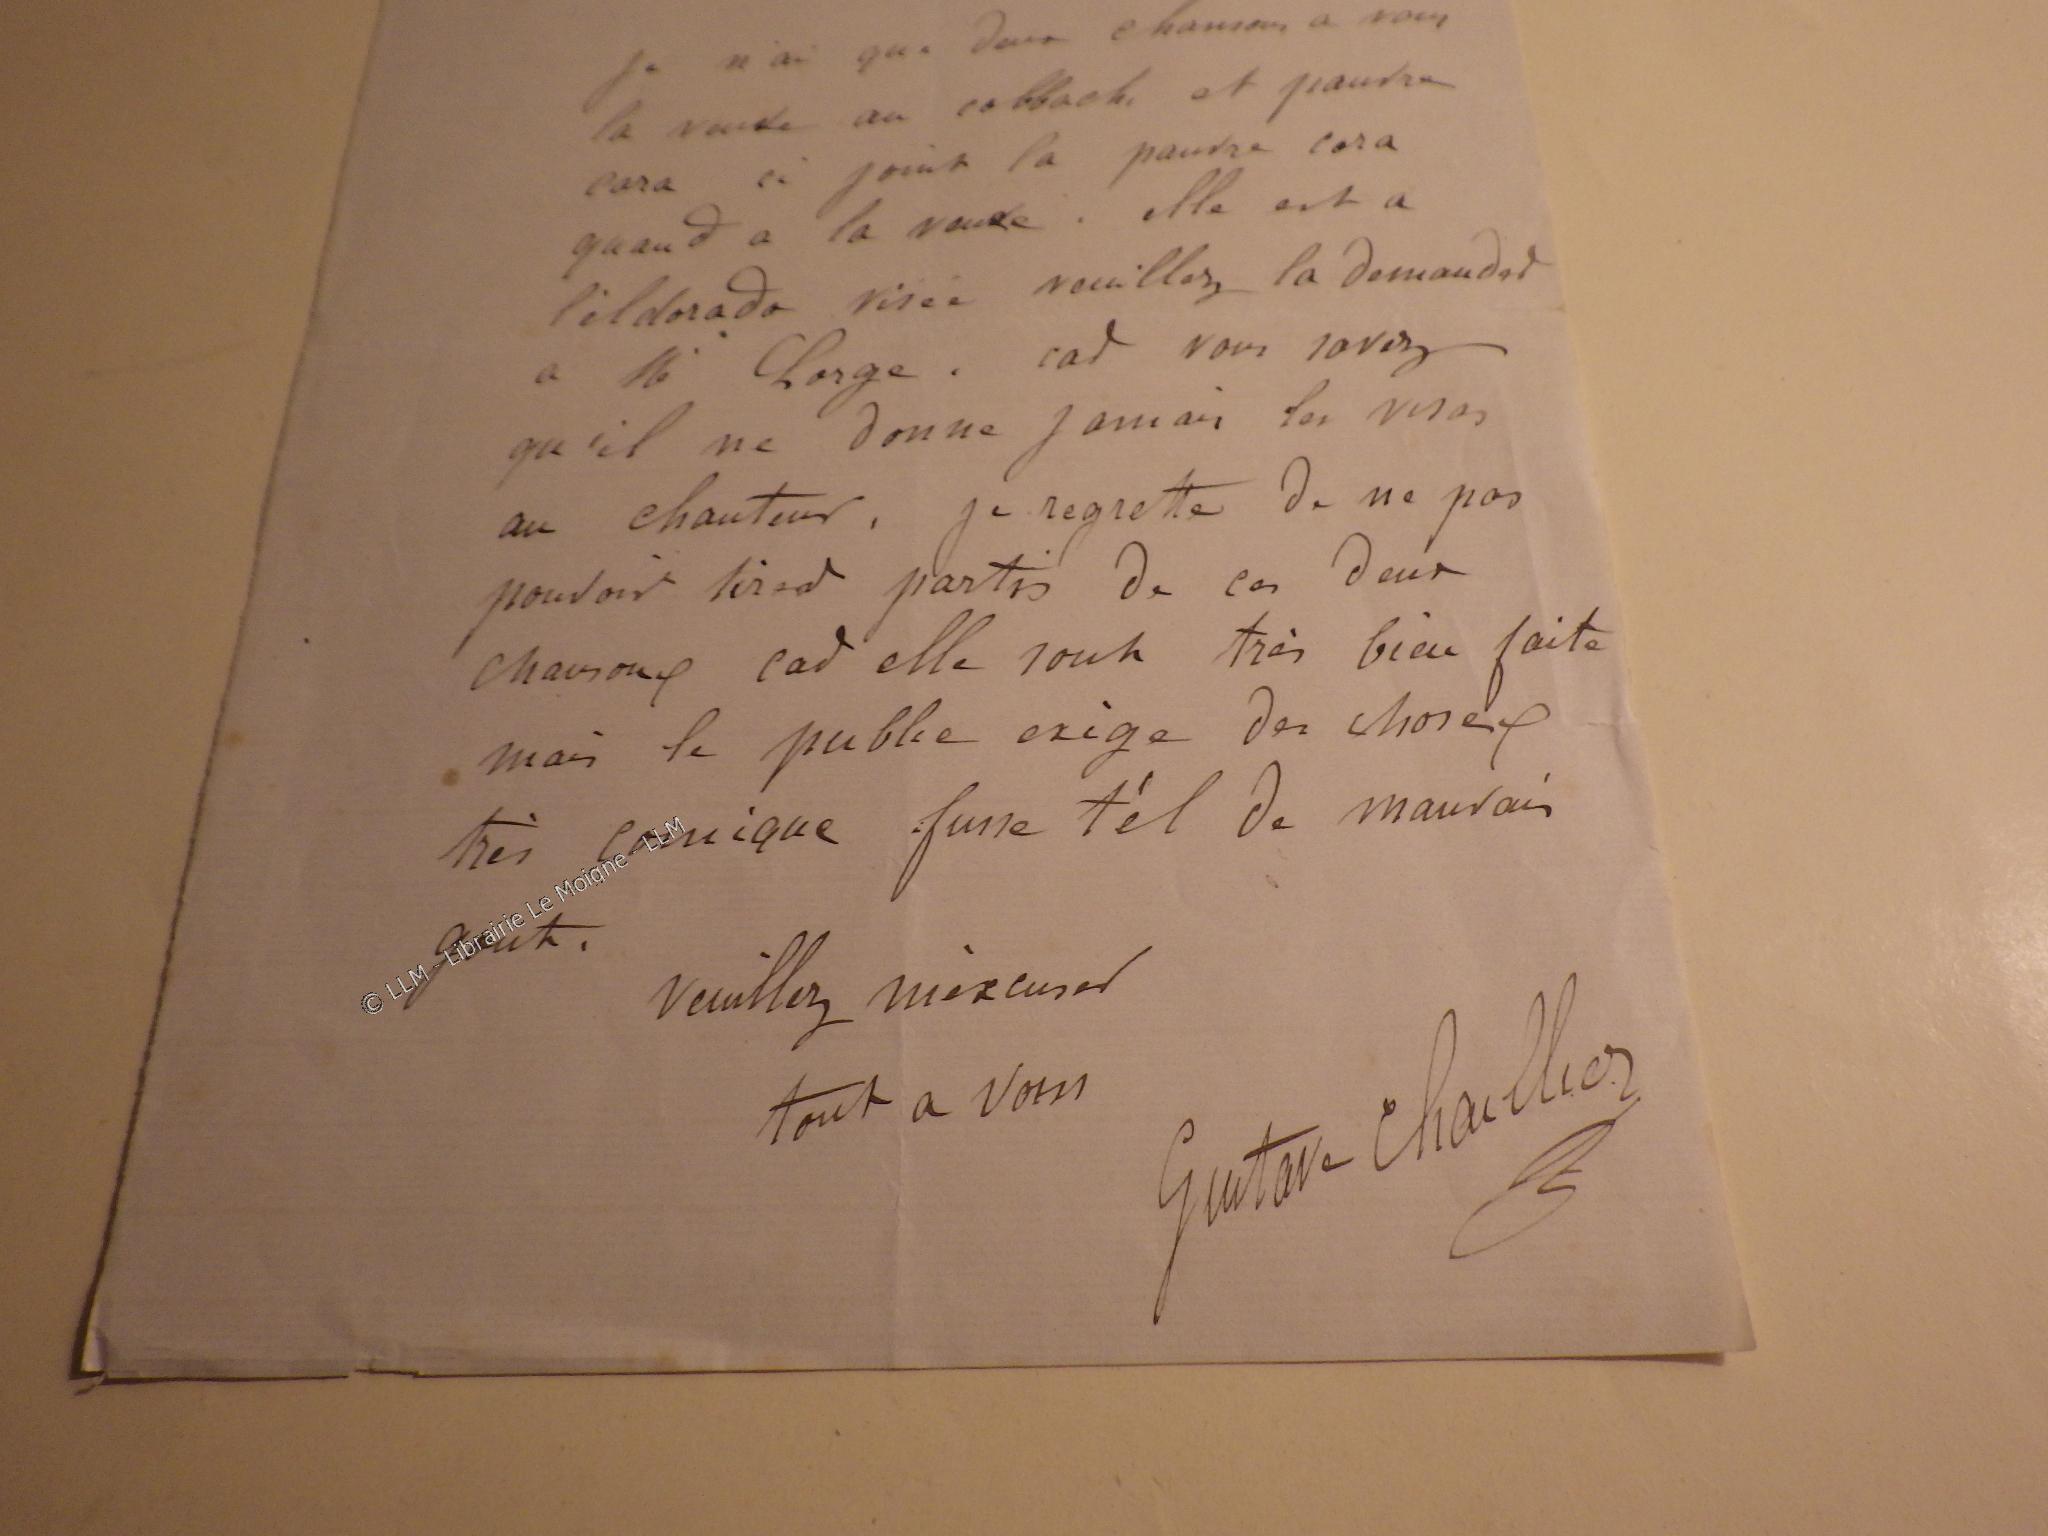 je n'ai que deux chansons a vous
la veuve au colback et pauvre
cora ci joint la pauvre cora
quand a la veuve. elle est a
l'eldorado visée veuillez la demander
a Mr Lorge. car vous savez
qu'il ne donne jamais les visas
au chanteur. je regrette de ne pas
pouvoir tirer partis de ces deux
chansons car elle sont très bien faite
mais le public exige des choses
très comique fusse t'él de mauvais
gout.
veuillez m'éxcuser
tout a vous
Gustave Chaillier
© LLM - Librairie Le Moigne - LLM